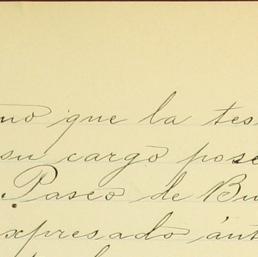 no que la tes
su cargo pose
Paseo de Bu
xpresado ánt